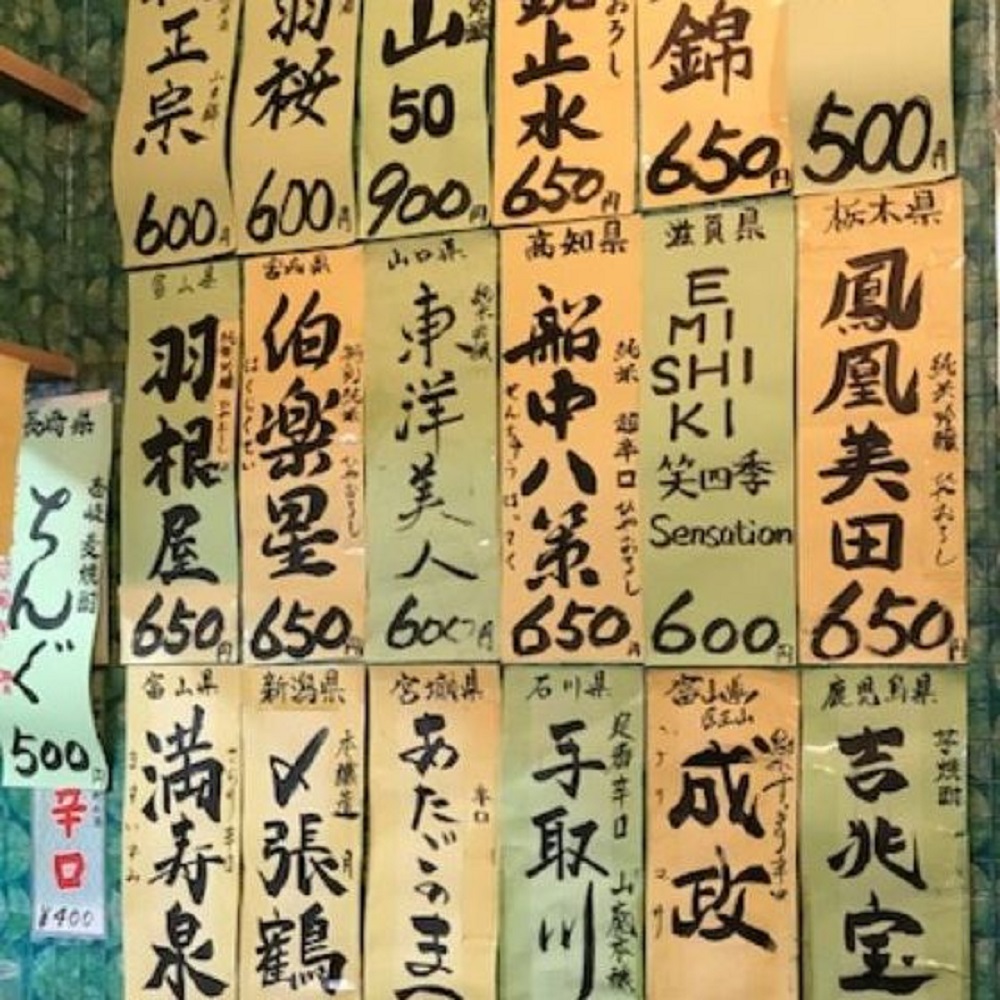 正宗
600円
羽桜
600円
山
50
900円
止水
おろし
650円
錦
650円
500円
富山県
羽根屋
650円
宮城県
伯楽星
特別純米
ひやおろし
はくらくせい
650円
山口県
東洋美人
純米吟醸
600円
高知県
船中八策
純米 超辛口 ひやおろし
せんちゅうはっさく
650円
滋賀県
EMISHIKI
笑四季
Sensation
600円
栃木県
鳳凰美田
純米吟醸 ひやおろし
650円
長崎県
壱岐麦焼酎
ちんぐ
500円
辛口
¥400
富山県
満寿泉
新潟県
〆張鶴
本醸造
月
宮城県
あたごのまつ
辛口
石川県
手取川
山廃本醸
富山県
成政
鹿児島県
芋焼酎
吉兆宝